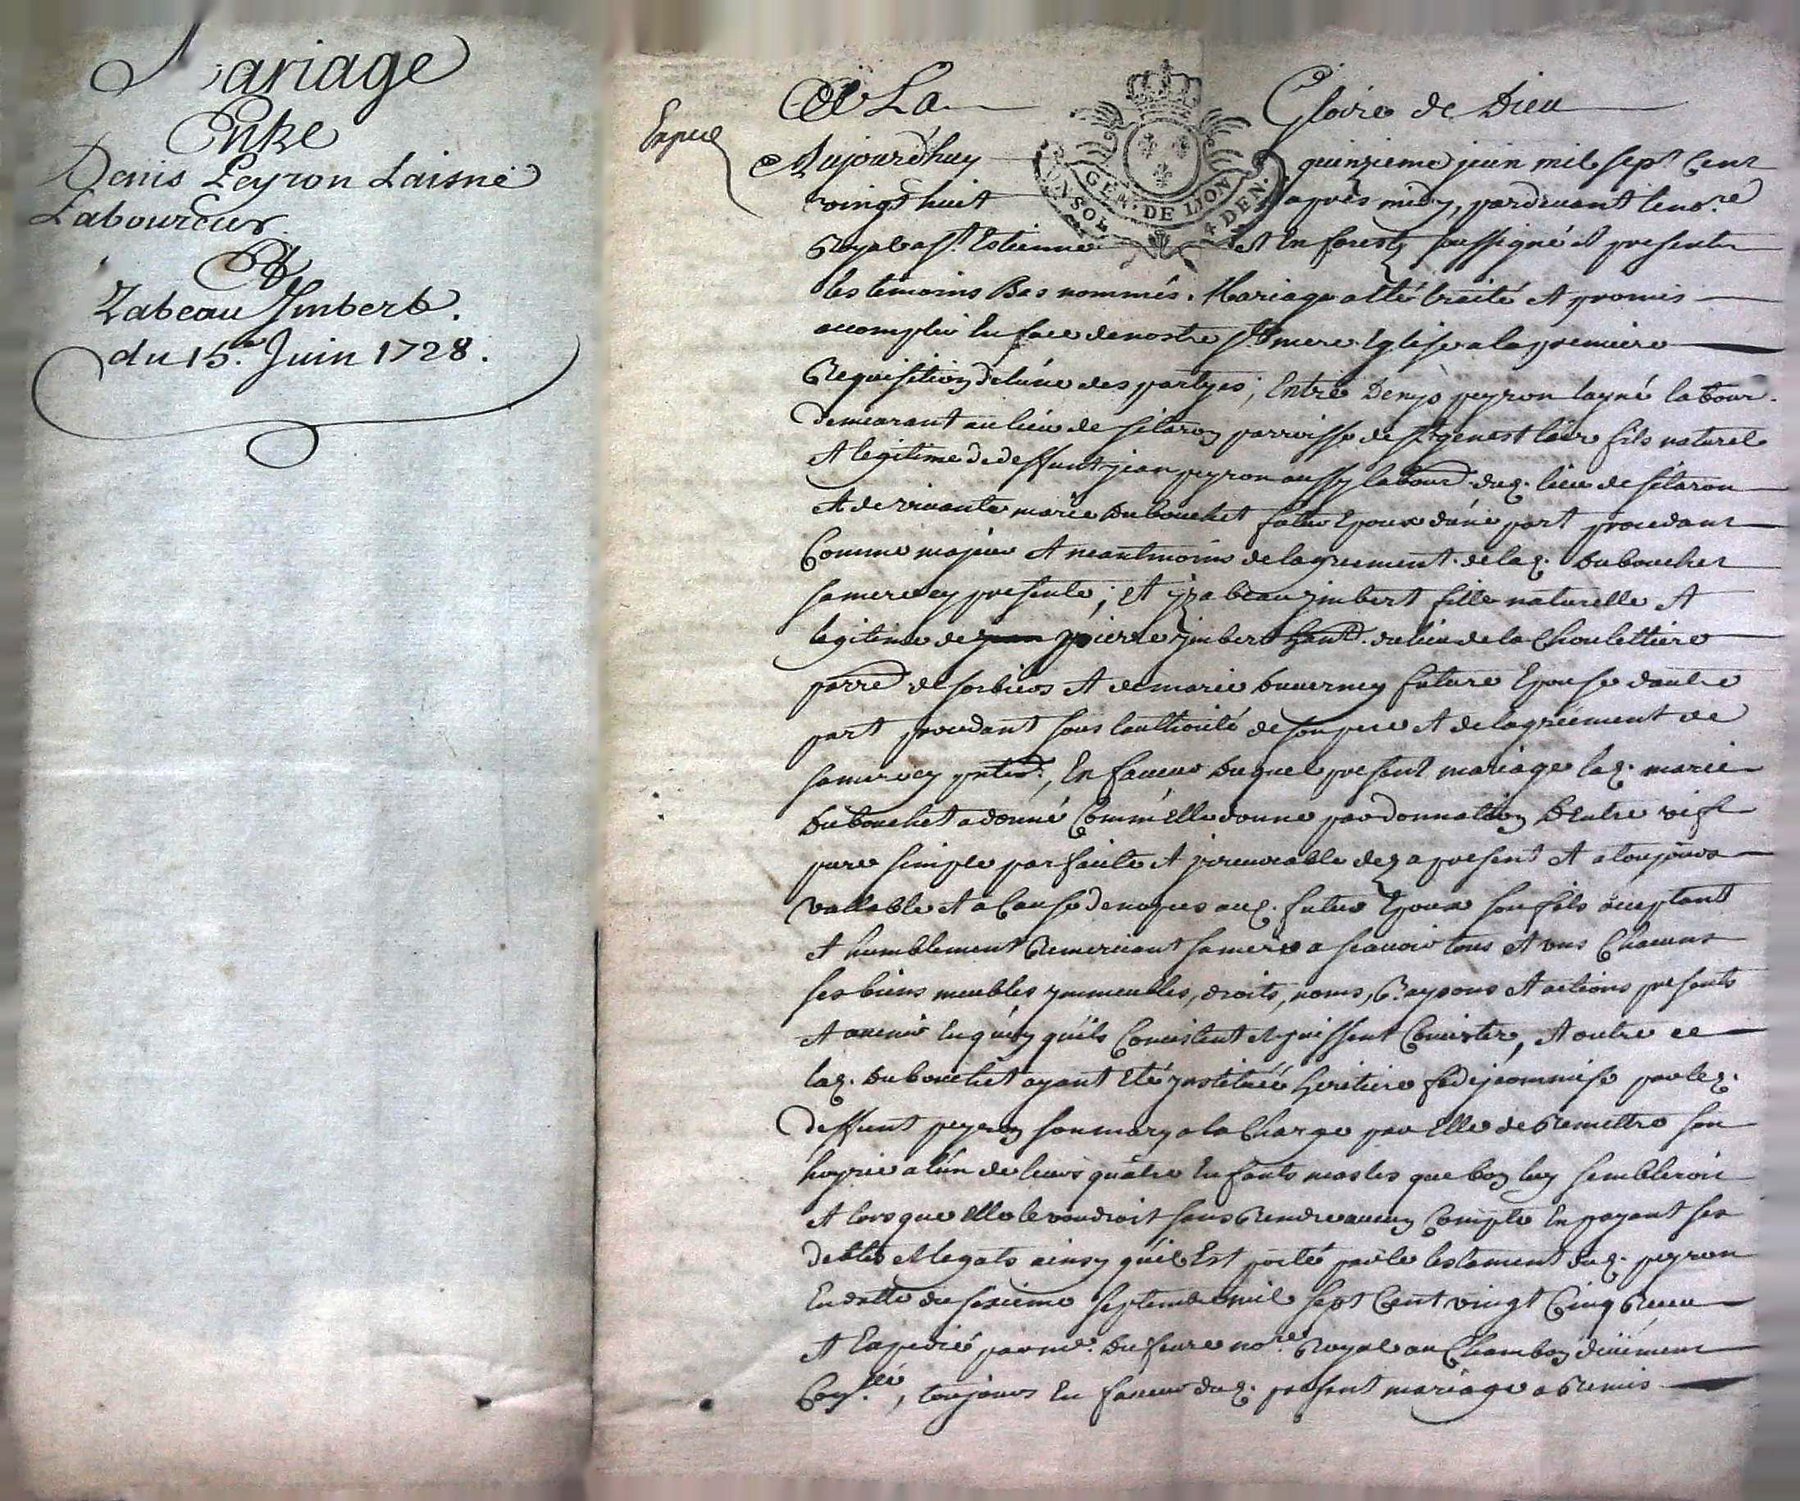 Mariage
Entre
Denis Peyron Laisné
Laboureur
Et
Izabeau Imbert.
du 15.e Juin 1728.
Expié
A La Gloire de Dieu
GEN. DE LION
UN SOL 4 DEN.
Aujourd'huy quinzieme juin mil sept cent
vingt huit apres midy, pardevant le no.re
Royal a St. Estienne et En forestz soussigné et presents
les temoins Bas nommés. Mariage a eté traité et promis
accomplir En face de nostre Ste mere Eglise a la premiere
Requisition de l'une des partyes; Entre Denys peyron layné labour.
demeurant au lieu de silaron parroisse de St genest lair fils naturel
et legitime de deffunt jean peyron aussy labour. dud. lieu de silaron
et de vivante marie Dubouchet futur Epoux d'une part procedant
Comme majeur et neantmoins de lagreement de lad. Dubouchet
sa mere cy presente; et yzabeau ymbert fille naturelle et
legitime de jean pierre ymbert hant. du lieu de la Choulettiere
parre de sorbiers et de marie duverney future Epouse dautre
part procedant sous lauthorité de son pere et de lagréement de
sa mere cy pnte., En faveur Duquel present mariage lad. marie
Dubouchet a donné Comm'Elle donne par donnation D'Entre vifs
pure simple parfaite et yrrevocable dez a present et a toujours
vallable et a Cause de nopces aud. futur Epoux son fils aceptant
et humblement Remerciant sa mere a scavoir tous et uns Chacuns
ses biens meubles ymmeubles, droits, noms, Raysons et actions presents
et avenir En quoy qu'ils Consistent et puissent Consister, et outre ce
lad. Dubouchet ayant Eté ynstituée heritiere fideycommise par led.
deffunt peyron son mary a la Charge par Elle de Remettre son
hoyrie a l'un de leurs quatre Enfants masles que bon luy sembleroit
et lors que Elle le voudroit sans Rendre aucun Compte En payant ses
debtes et legats ainsy qu'il Est porté par le testament dud. peyron
En datte du sezieme septembre mil sept Cent vingt Cinq Receu
et Expedié par me. Dufeure no.re Royal au Chambon düement
Con.llé, toujours En faveur dud. present mariage a Remis